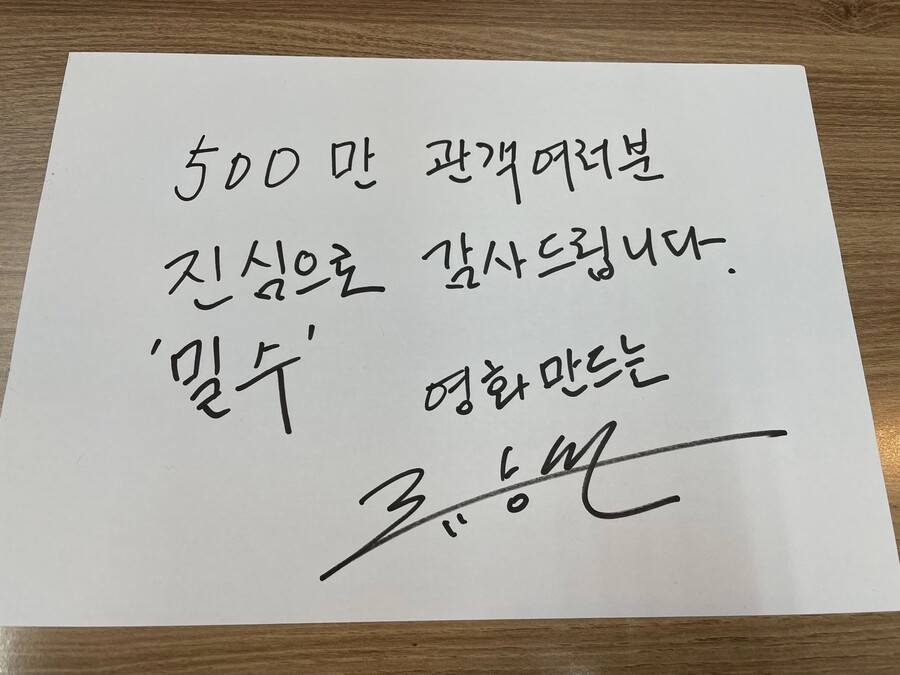 500만 관객여러분
진심으로 감사드립니다.
'밀수'
영화만드는